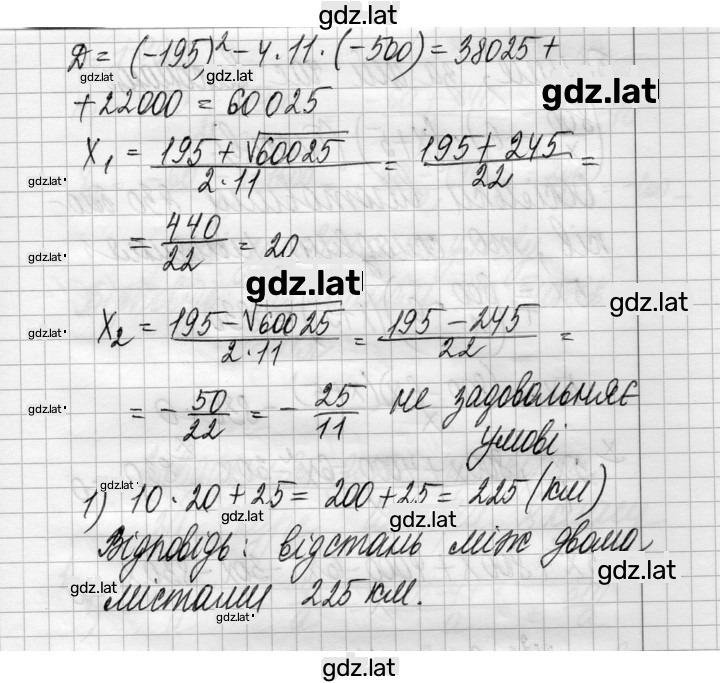 gdz.lat
D = (-195)² - 4·11·(-500) = 38025 +
gdz.lat gdz.lat
gdz.lat
+ 22000 = 60025
X₁ = (195 + √60025)/(2·11) = (195 + 245)/22 =
gdz.lat
= 440/22 = 20
gdz.lat
gdz.lat
gdz.lat
X₂ = (195 - √60025)/(2·11) = (195 - 245)/22 =
gdz.lat
= - 50/22 = - 25/11 не задовольняє
gdz.lat
умові
gdz.lat
1) 10·20 + 25 = 200 + 25 = 225 (км)
gdz.lat gdz.lat
Відповідь: відстань між двома
gdz.lat
містами 225 км.
gdz.lat
gdz.lat
gdz.lat